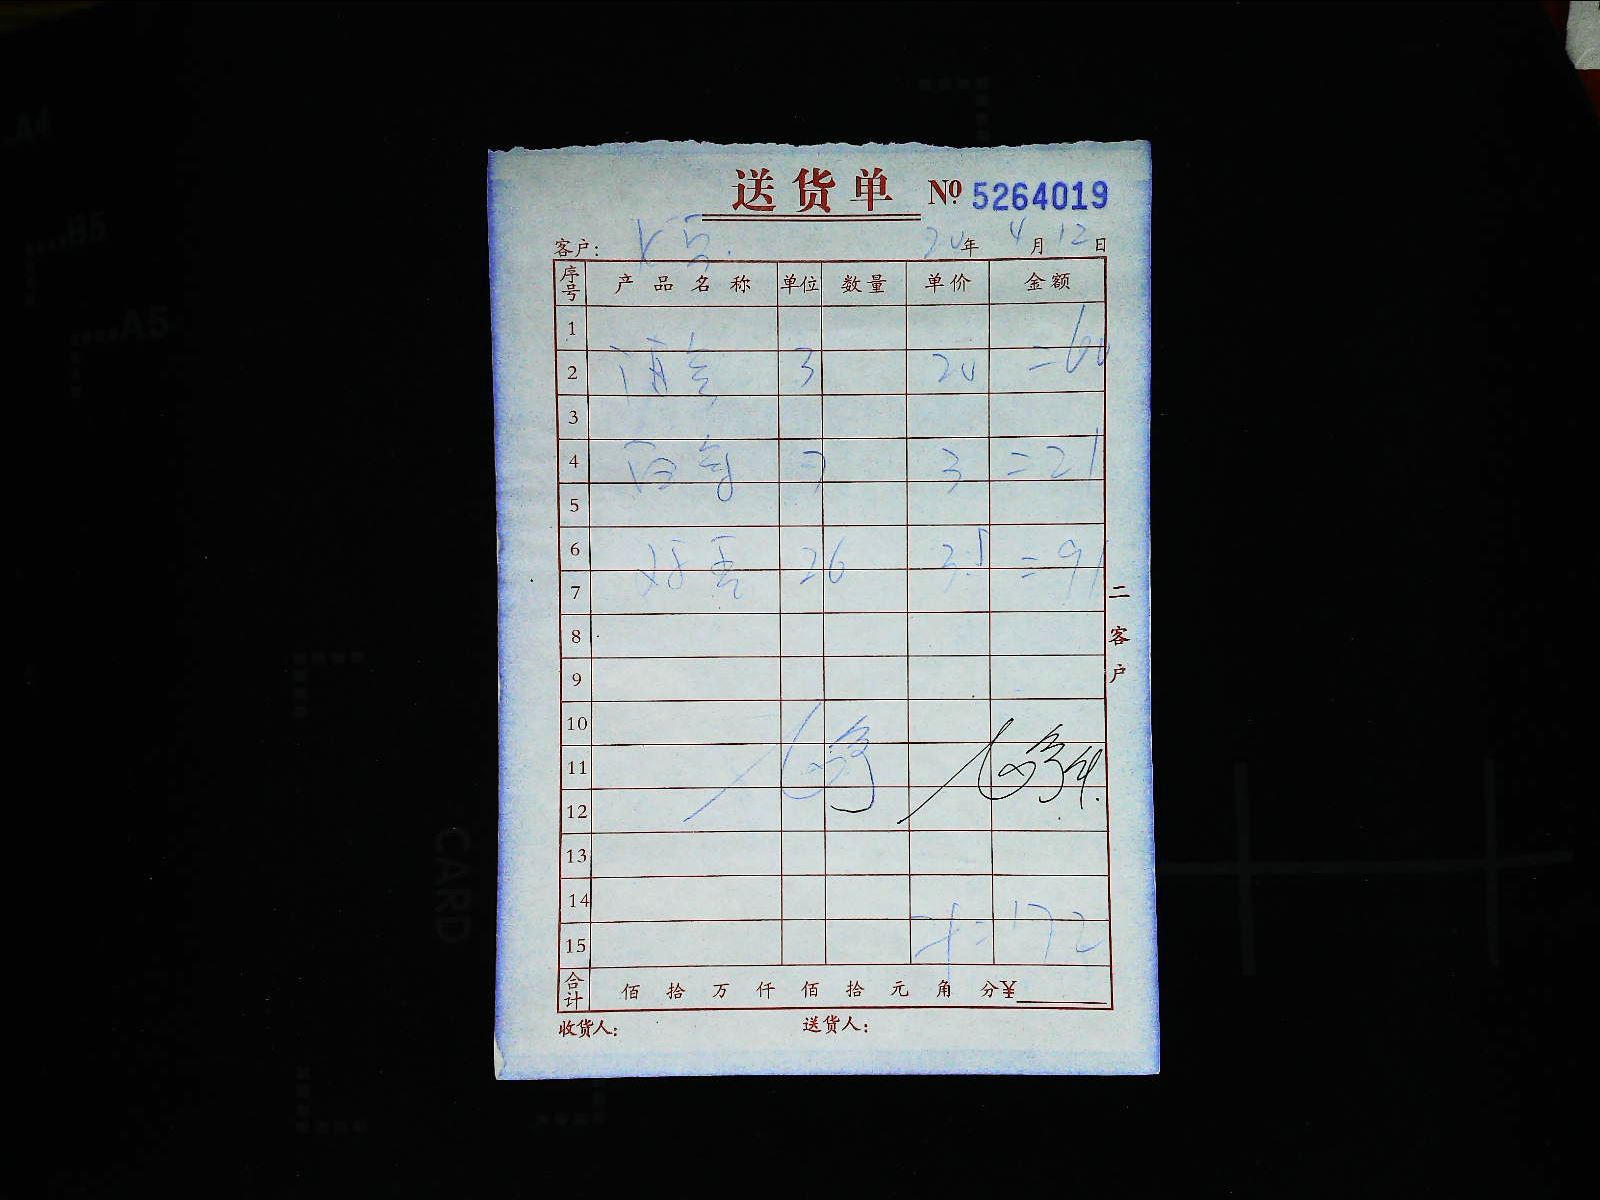 送货单 № 5264019
客户: 20年 4月 12日
序号 产品名称 单位 数量 单价 金额
1
2 3 20 =60
3
4 7 3 =21
5
6 26 3.5 =91
7
8
9
10
11
12
13
14
15 =172
合计 佰 拾 万 仟 佰 拾 元 角 分¥
收货人: 送货人:
二客户
A4
B5
A5
CARD